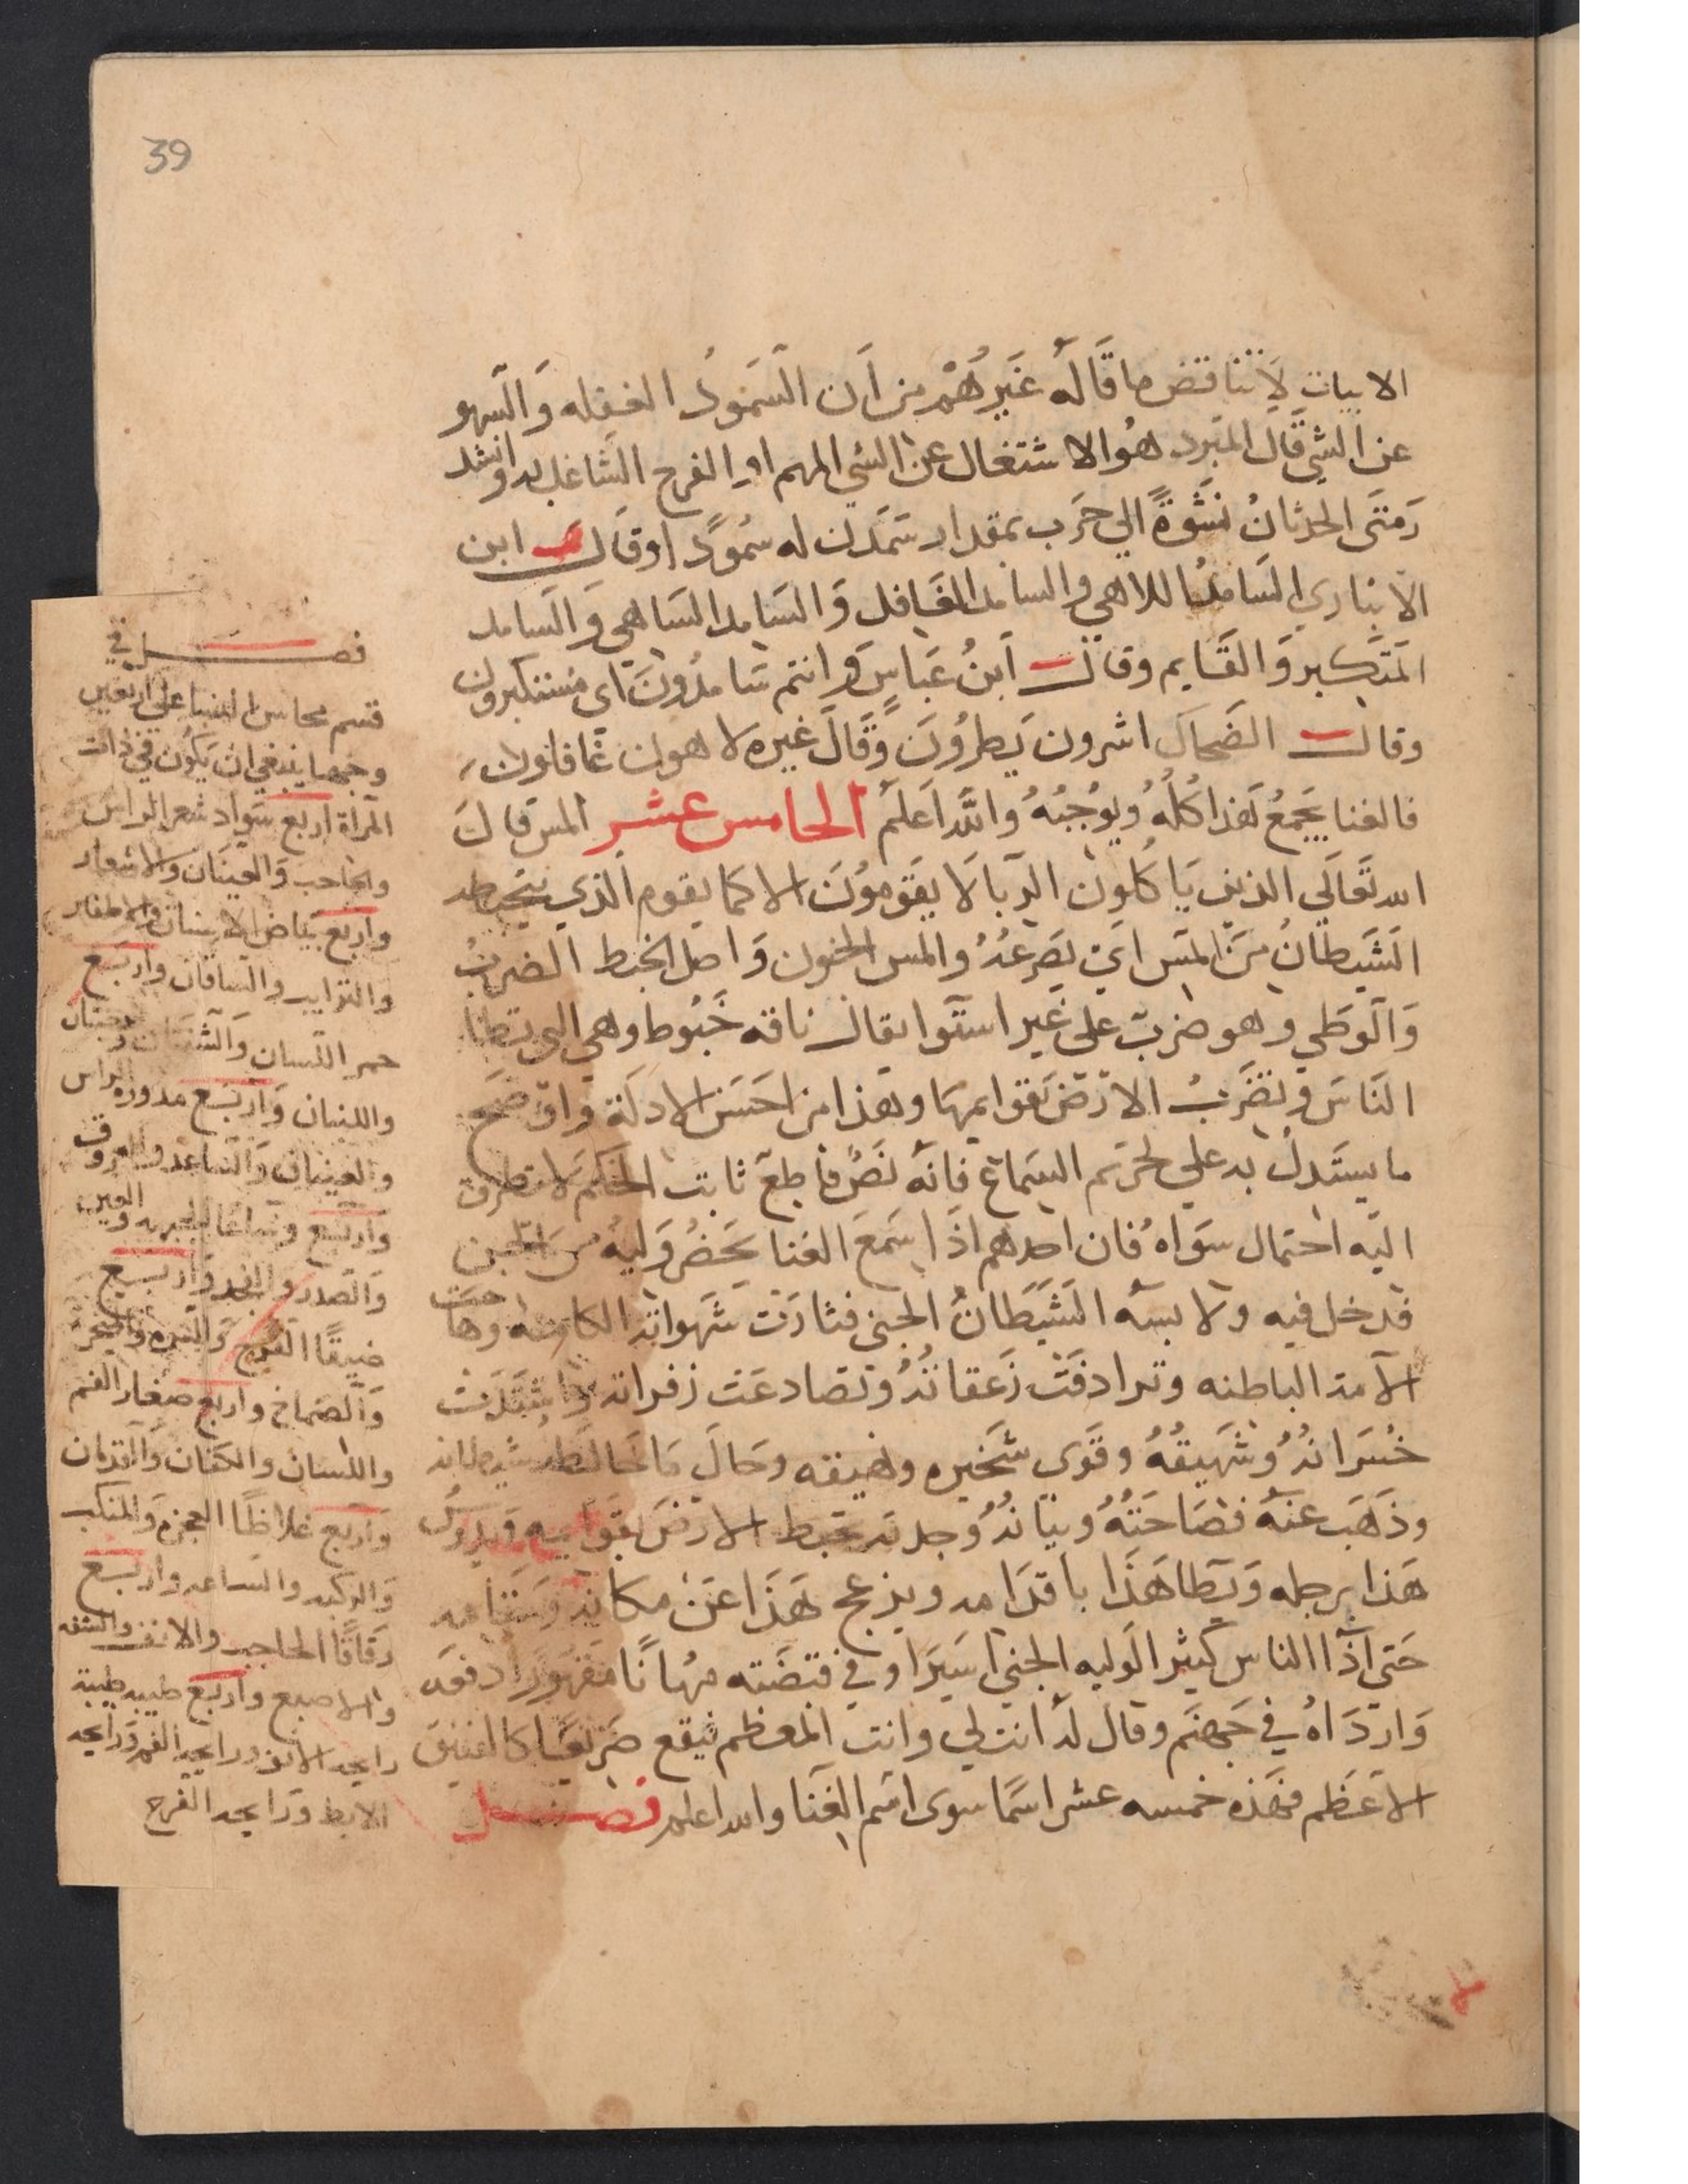 39
الابيات لا تناقض ما قاله غيرهم من ان السمود الغفله والسهو
عن الشي قال المبرد هو الاشتغال عن الشي المهم او الفرح الشاغل له وانشد
رمتى الحدثان نشوة الي حرب بمقدار سمدن له سمودا وقال ابن
الانباري السامد اللاهي والسامد الغافل والسامد الساهي والسامد
المتكبر والقايم وقال ابن عباس وانتم سامدون اى مستكبرون
وقال الضحاك اشرون يطرون وقال غيره لاهون غافلون
فالغنا يجمع هذا كله ويوجبه والله اعلم الخامس عشر المس قال
الله تعالي الذين ياكلون الربا لا يقومون الا كما يقوم الذي يتخبطه
الشيطان من المس اي يصرعه والمس الجنون واصل الخبط الضرب
والوطي وهو ضرب على غير استوا يقال ناقه خبوط وهي التي تطا
الناس وتضرب الارض بقوايمها وهذا من احسن الادلة واوضح
ما يستدل به علي تحريم السماع فانه نص قاطع ثابت الحكم لا تطرق
اليه احتمال سواه فان احدهم اذا سمع الغنا يحضر وليه من الجن
فدخل فيه ولابسه الشيطان الجنى فثارت شهواته الكامنه وهاجت
الامه الباطنه وترادفت زعقاته وتصادعت زفراته واشتدت
خسراته وشهيقه وقوى شخيره ونهيقه وحال ما خالطه شيطانه
وذهب عنه فصاحته وبيانه وجدته يخبط الارض بقوايمه ويدوس
هذا برجله ويطا هذا باقدامه ويزعج هذا عن مكانه ومقامه
حتى اذا الناس كثير الوليه الجني اسيرا وفي قبضته مهانا مقهورا دفعه
وارداه في جهنم وقال له انت لي وانت المعظم فيقع صريعا كالفنيق
الاعظم فهذه خمسه عشر اسما سوى اسم الغنا والله اعلم فصل
فصل في
قسم محاسن النسا على اربعين
وجها ينبغي ان يكون في ذات
المراة اربع سواد شعر الراس
والحاجب والعينان والاشعار
واربع بياض الاسنان والاظفار
والترايب والساقان واربع
حمر اللسان والشفتان والوجنتان
واللثبان واربع مدوره الراس
والعينان والساعد والعرقوب
واربع وساعا الجبهه والعين
والصدر والخد واربع
ضيقا الفرج والسره والمنخر
والصماخ واربع صغار الفم
واللسان والكفان والقدمان
واربع غلاظا العجزه والمنكب
والركبه والساعد واربع
رقاقا الحاجب والانف والشفه
والاصبع واربع طيبه طيبة
رايحه الانف ورايحه الفم ورايحه
الابط ورايحه الفرج